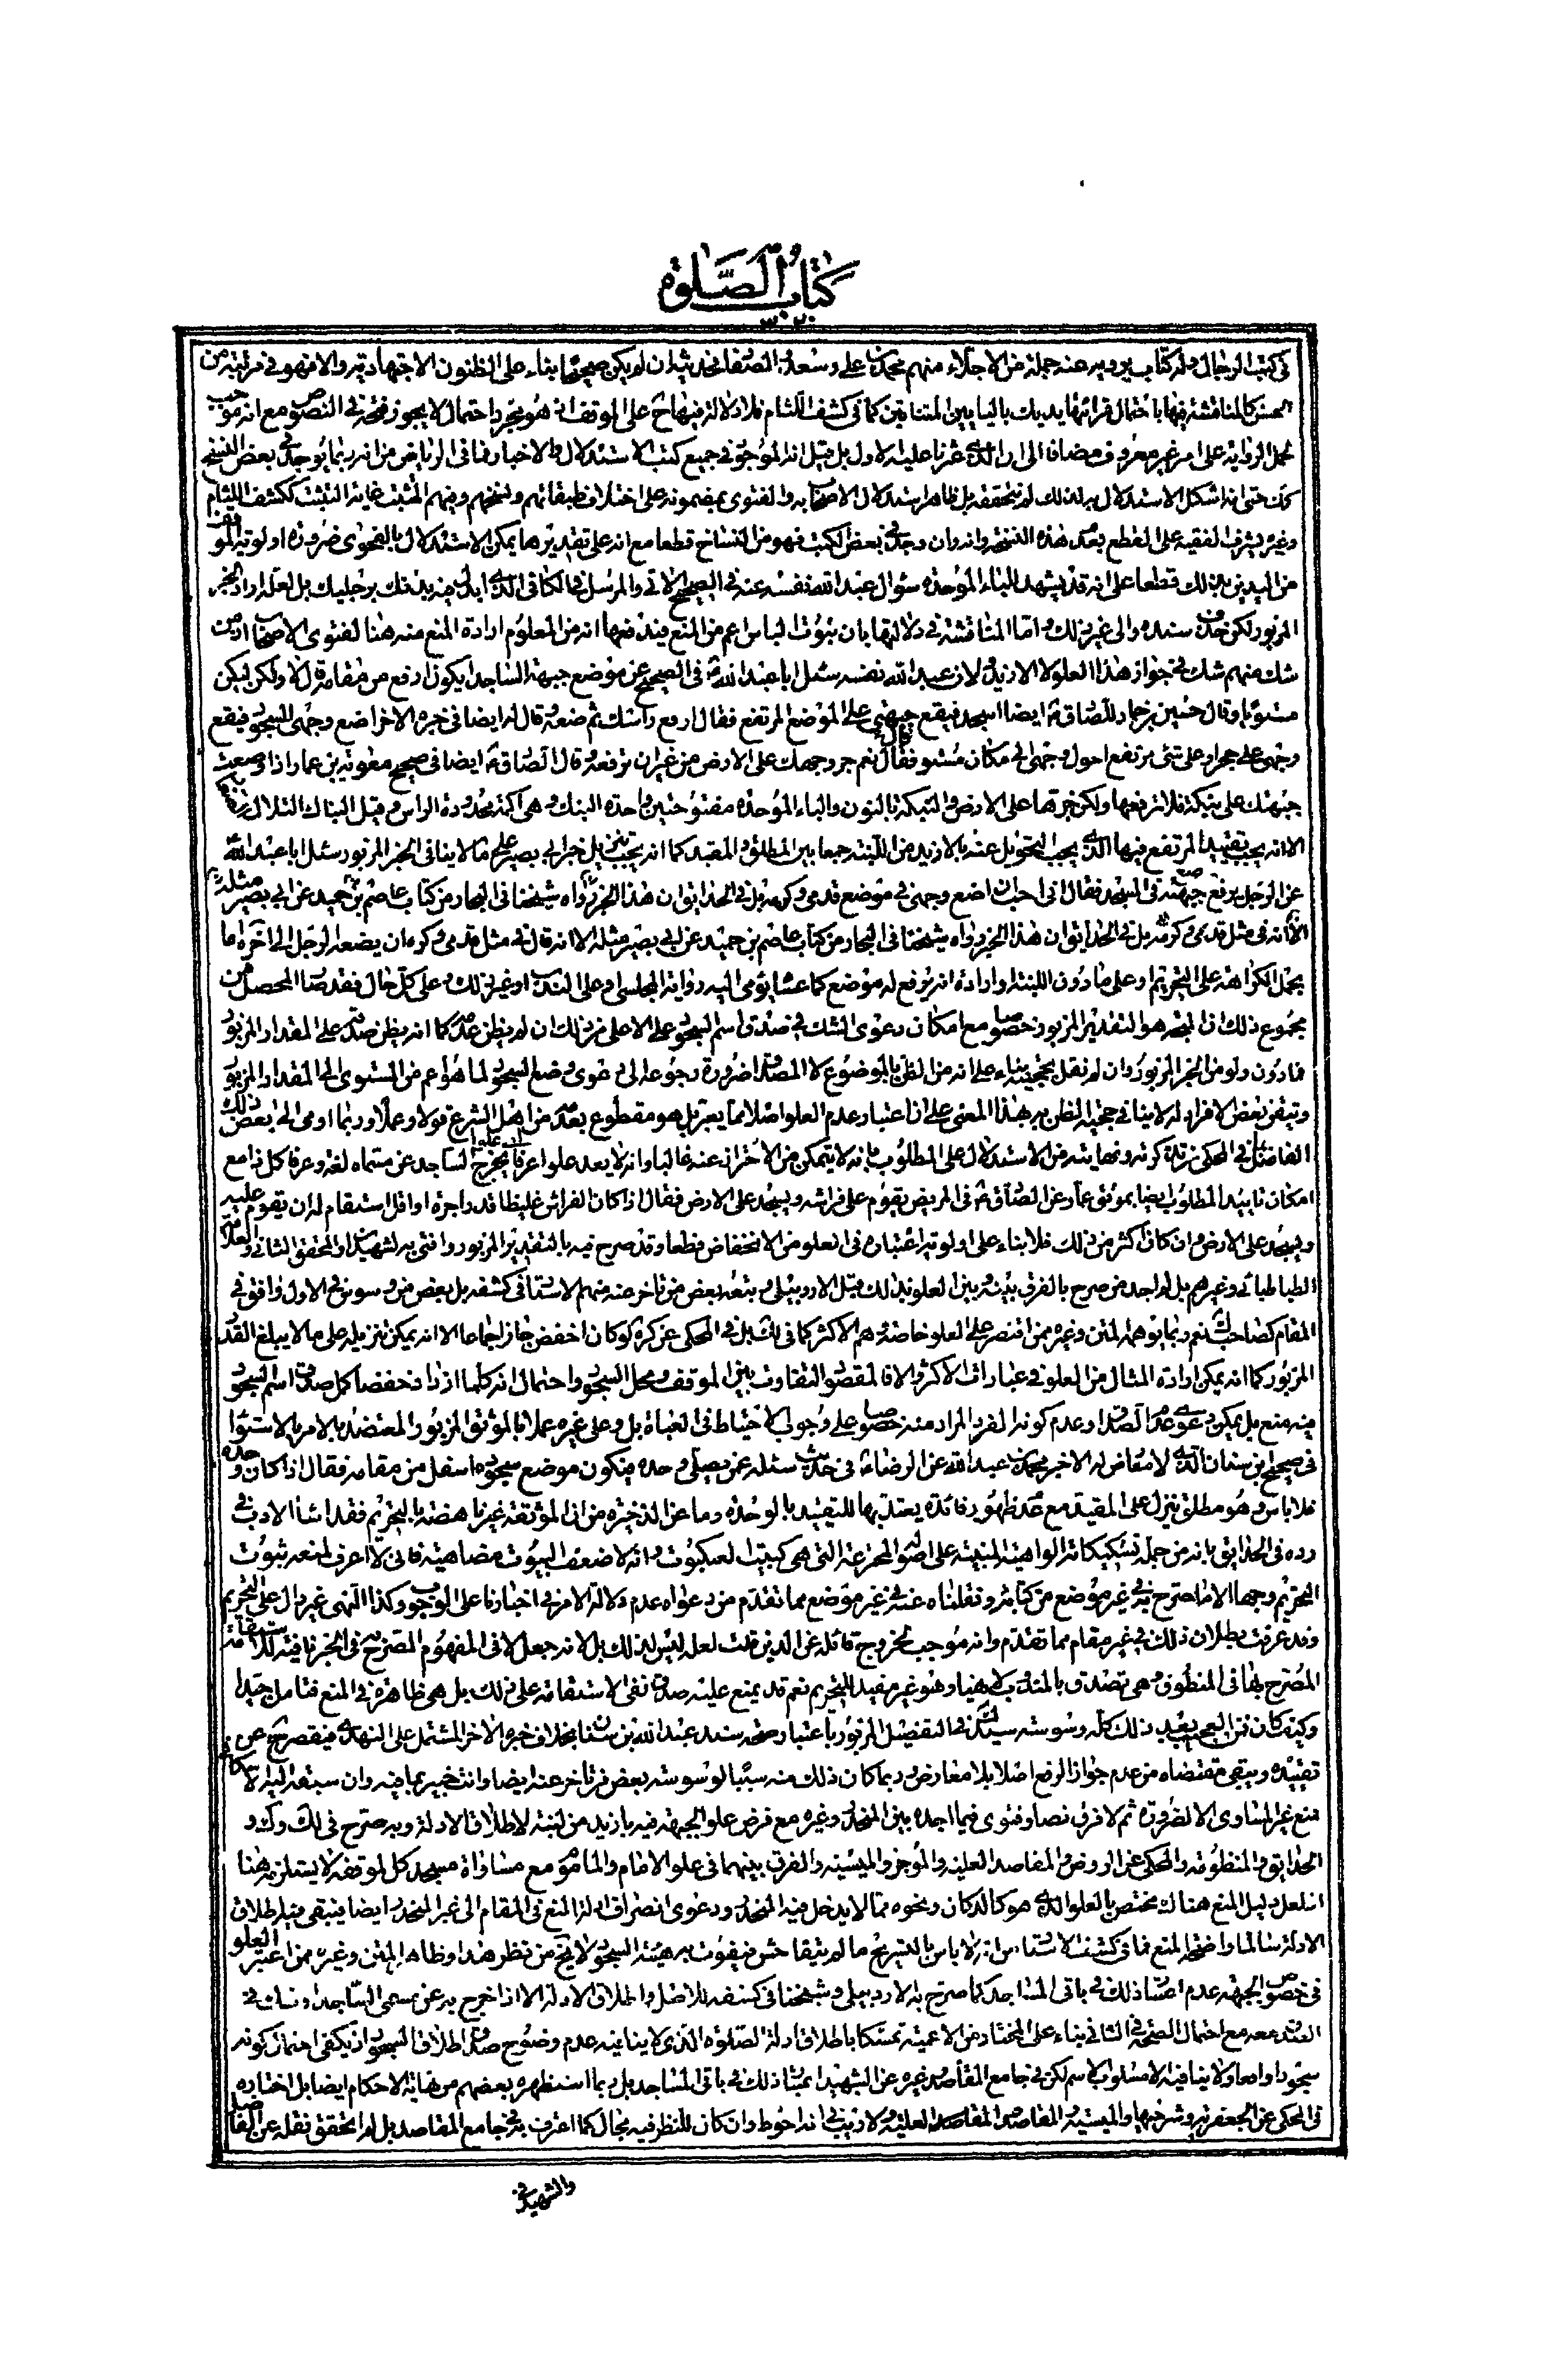 كتاب الصلوة
في كتب الرجال وله كتاب يرويه عنه جملة من الاجلاء منهم محمد بن علي وسعد والصفار فحديثه ان لم يكن صحيحا بناء على الظنون الاجتهادية والا فهو في مرتبة من
الحسن كالمناقشة فيها باحتمال قرائتها يديك باليايين المثناتين كما في كشف اللثام فلا دلالة فيها ح على الموقف اذ هو مجرد احتمال لا يجوز فتحه في النصوص مع انه موجب
لحمل الرواية على امر غير معروف مضافا الى ان الذي عثرنا عليه الاول بل قيل انه الموجود في جميع كتب الاستدلال والاخبار وما في الرياض من انه ربما يوجد في بعض النسخ
كك حتى انه اشكل الاستدلال به لذلك لم نتحققه بل ظاهر استدلال الاصحاب به والفتوى بمضمونه على اختلاف طبقاتهم ونسخهم وفيهم المتثبت غاية التثبت ككشف اللثام
وغيره يشرف الفقيه على القطع بعدم هذه النسخة وانه وان وجد في بعض الكتب فهو من النساخ قطعا مع انه على تقديرها يمكن الاستدلال بالفحوى ضرورة اولوية الموقف
من اليدين بذلك قطعا على انه قد يشهد للباء الموحدة سؤال عبد الله نفسه عنه في الصحيح الاتي والمرسل في الكافي الذي ابدل فيه بدنك برجليك بل لعله اراد الخبر
المزبور لكن حذف سنده والى غير ذلك واما المناقشة في دلالتها بان ثبوت الباس اعم من المنع فيدفعها انه من المعلوم ارادة المنع منه هنا لفتوى الاصحاب اذ من
شك منهم شك في جواز هذا العلو لا الازيد ولان عبد الله نفسه سئل ابا عبد الله ع في الصحيح عن موضع جبهة الساجد ايكون ارفع من مقامه قال لا ولكن ليكن
مستويا وقال حسين بن حماد للصادق ع ايضا اسجد فيقع جبهتي على الموضع المرتفع فقال ارفع راسك ثم ضعه وقال له ايضا في خبره الاخر اضع وجهي للسجود فيقع
وجهي على حجر او على شئ مرتفع احول وجهي الى مكان مستو فقال نعم جر وجهك على الارض من غير ان ترفعه وقال الصادق ع ايضا في صحيح معوية بن عمار اذا وضعت
جبهتك على نبكة فلا ترفعها ولكن جرها على الارض والنبكة بالنون والباء الموحدة مفتوحتين واحدة النبك وهي اكمة محدودة الراس وقيل النباك التلال
الا انه يجب تقييد المرتفع فيها الذي يجب التحويل عنه بالازيد من اللبنة جمعا بين المطلق والمقيد كما انه يجب تنزيل خبر ابي بصير على ما لا ينافي الخبر المزبور سئل ابا عبد الله ع
عن الرجل يرفع موضع جبهته في المسجد فقال اني احب ان اضع وجهي في موضع قدمي وكرهه بل في الحدائق ان هذا الخبر رواه شيخنا في البحار من كتاب عاصم بن حميد عن ابي بصير مثله
الا انه في مثل قدمي وكرهه بل في الحدائق ان هذا الخبر رواه شيخنا في البحار من كتاب عاصم بن حميد عن ابي بصير مثله الا انه قال في مثل قدمي وكره ان يضعه الرجل الى اخره اما
بحمل الكراهة على التحريم او على ما دون اللبنة وارادة انه يرفع له موضع كما عساه يومي اليه رواية المجلسي او على الندب او غير ذلك وعلى كل حال فقد صار المحصل من
مجموع ذلك ان المتجه هو التقدير المزبور خصوصا مع امكان دعوى الشك في صدق اسم السجود على الاعلى من ذلك ان لم يظن عدمه كما انه يظن صدقه على المقدار المزبور
فما دون ولو من الخبر المزبور وان لم نقل بحجيته بناء على انه من الظن بالموضوع لا المصداق ضرورة رجوعه الى دعوى وضع السجود لما هو اعم من المستوى الى المقدار المزبور
وتيقن بعض الافراد له لا ينافي حجية الظن به بهذا المعنى على ان اعتبار عدم العلو اصلا مما يعتبر بل هو مقطوع بعدمه من اهل الشرع قولا وعملا وربما اومى الى بعض ذلك
الفاضل في المحكي من تذكرته ونهايته من الاستدلال على المطلوب بانه لا يتمكن من الاحتراز عنه غالبا وانه لا يعد علوا عرفا فيخرج الساجد عن مسماه لغة وعرفا كل ذا مع
امكان تاييد المطلوب ايضا بموثق عمار عن الصادق ع في المريض يقوم على فراشه ويسجد على الارض فقال اذا كان الفراش غليظا قدر اجرة او اقل استقام له ان يقوم عليه
ويسجد على الارض وان كان اكثر من ذلك فلا بناء على اولوية اعتباره في العلو من الانخفاض قطعا وقد صرح فيه بالتقدير المزبور وافتى به الشهيدان والمحقق الثاني والعلامة
الطباطبائي وغيرهم بل لم اجد من صرح بالفرق بينه وبين العلو بذلك قبل الاردبيلي وتبعه بعض من تاخر عنه منهم الاستاد في كشفه بل بعض من وسوس في الاول وافق في
المقام كصاحب ك نعم ربما يوهمه المتن وغيره ممن اقتصر على العلو خاصة هم الاكثر كما في ك بل في المحكي عن كره لو كان اخفض جاز اجماعا الا انه يمكن تنزيله على ما لا يبلغ القدر
المزبور كما انه يمكن ارادة المثال من العلو في عبارات الاكثر والا فالمقصود التفاوت بين الموقف ومحل السجود واحتمال انه كلما ازداد خفضا كمل صدق اسم السجود
فيه منع بل يمكن دعوى عدم الصدق او عدم كونه الفرد المراد منه خصوصا على وجوب الاحتياط في العبادة بل وعلى غيره عملا بالموثق المزبور المعتضد بالامر بالاستواء
في صحيح بن سنان الذي لا معارض له الا خبر محمد بن عبد الله عن الرضا ع في حديث سئله عمن يصلي وحده فيكون موضع سجوده اسفل من مقامه فقال اذا كان وحده
فلا باس وهو مطلق ينزل على المقيد مع عدم ظهور فائدة يعتد بها للتقييد بالوحدة وما عن الذخيرة من ان الموثقة غير ناهضة بالتحريم فقد اساء الادب في
رده في الحدائق بانه من جملة تشكيكاته الواهية المبنية على اصوله المخترعة التي هي كبيت العنكبوت وانه لاضعف البيوت مضاهية فاني لا اعرف لمنعه ثبوت
التحريم وجها الا ما صرح به في غير موضع من كتابه ونقلناه عنه في غير موضع مما تقدم من دعواه عدم دلالة الامر في اخبارنا على الوجوب وكذا النهي غير دال على التحريم
وقد عرفت بطلان ذلك في غير مقام مما تقدم وانه موجب لخروج قائله عن الدين قلت لعله ليس لذلك بل لانه جعل لا في المفهوم المصرح به في الخبر نافية للاستقامة
المصرح بها في المنطوق وهي تصدق بالمندوب لا هنا وهو غير مفيد للتحريم نعم قد يمنع عليه صدق نفي الاستقامة على ذلك بل هي ظاهرة في المنع فتامل جيدا
وكيف كان فمن العجيب بعد ذلك كله وسوسة سيد ك في التفصيل المزبور باعتبار صحة سند عبد الله بن سنان بخلاف خبره الاخر المشتمل على النهدي فيقصر عن
تقييده ويبقى مقتضاه من عدم جواز الرفع اصلا بلا معارض وربما كان ذلك منه سببا لوسوسة بعض من تاخر عنه ايضا وانت خبير بما فيه وان سبقه اليه
منع غير المساوي الا لضرورة ثم لا فرق نصا وفتوى فيما اجده بين المنحدر وغيره مع فرض علو الجبهة فيه بازيد من لبنة لاطلاق الادلة وبه صرح في لك
الحدائق والمنظومة والمحكي عن الروض والمقاصد العلية والموجز والميسية والفرق بينهما في علو الامام والماموم مع مساواة مسجد كل لموقفه لا يستلزمه هنا
اذ لعل دليل المنع هناك مختص بالعلو الذي هو كالدكان ونحوه مما لا يدخل فيه المنحدر ودعوى انصراف ادلة المنع في المقام الى غير المنحدر ايضا فيبقى فيه اطلاق
الادلة سالما واضحة المنع فما في كشف الاستاد من انه لا باس بالتسريح ما لم يتفاحش فيفوت به هيئة السجود لا يخ من نظر هذا وظاهر المتن وغيره ممن اعتبر العلو
في خصوص الجبهة عدم اعتبار ذلك في باقي المساجد كما صرح به الاردبيلي وشيخنا في كشفه للاصل واطلاق الادلة الا اذا خرج به عن مسمى الساجد او شك في
العقد معه مع احتمال الصحة في الثاني بناء على المختار من الاعمية تمسكا باطلاق ادلة الصلوة الذي لا ينافيه عدم وضوح صدق اطلاق السجود اذ يكفي احتمال كونه
سجودا واقعا ولا ينافيه الا مسلوب الاسم لكن في جامع المقاصد وغيره عن الشهيد اعتبار ذلك في باقي المساجد بل ربما استظهره بعضهم من نهاية الاحكام ايضا بل اختاره
في المحكي عن الجعفرية وشرحيها والميسية والمقاصد العلية ولا ريب في انه احوط وان كان للنظر فيه مجال كما اعترف به في جامع المقاصد بل لم اتحقق نقله عن الفاضل
والشهيد في